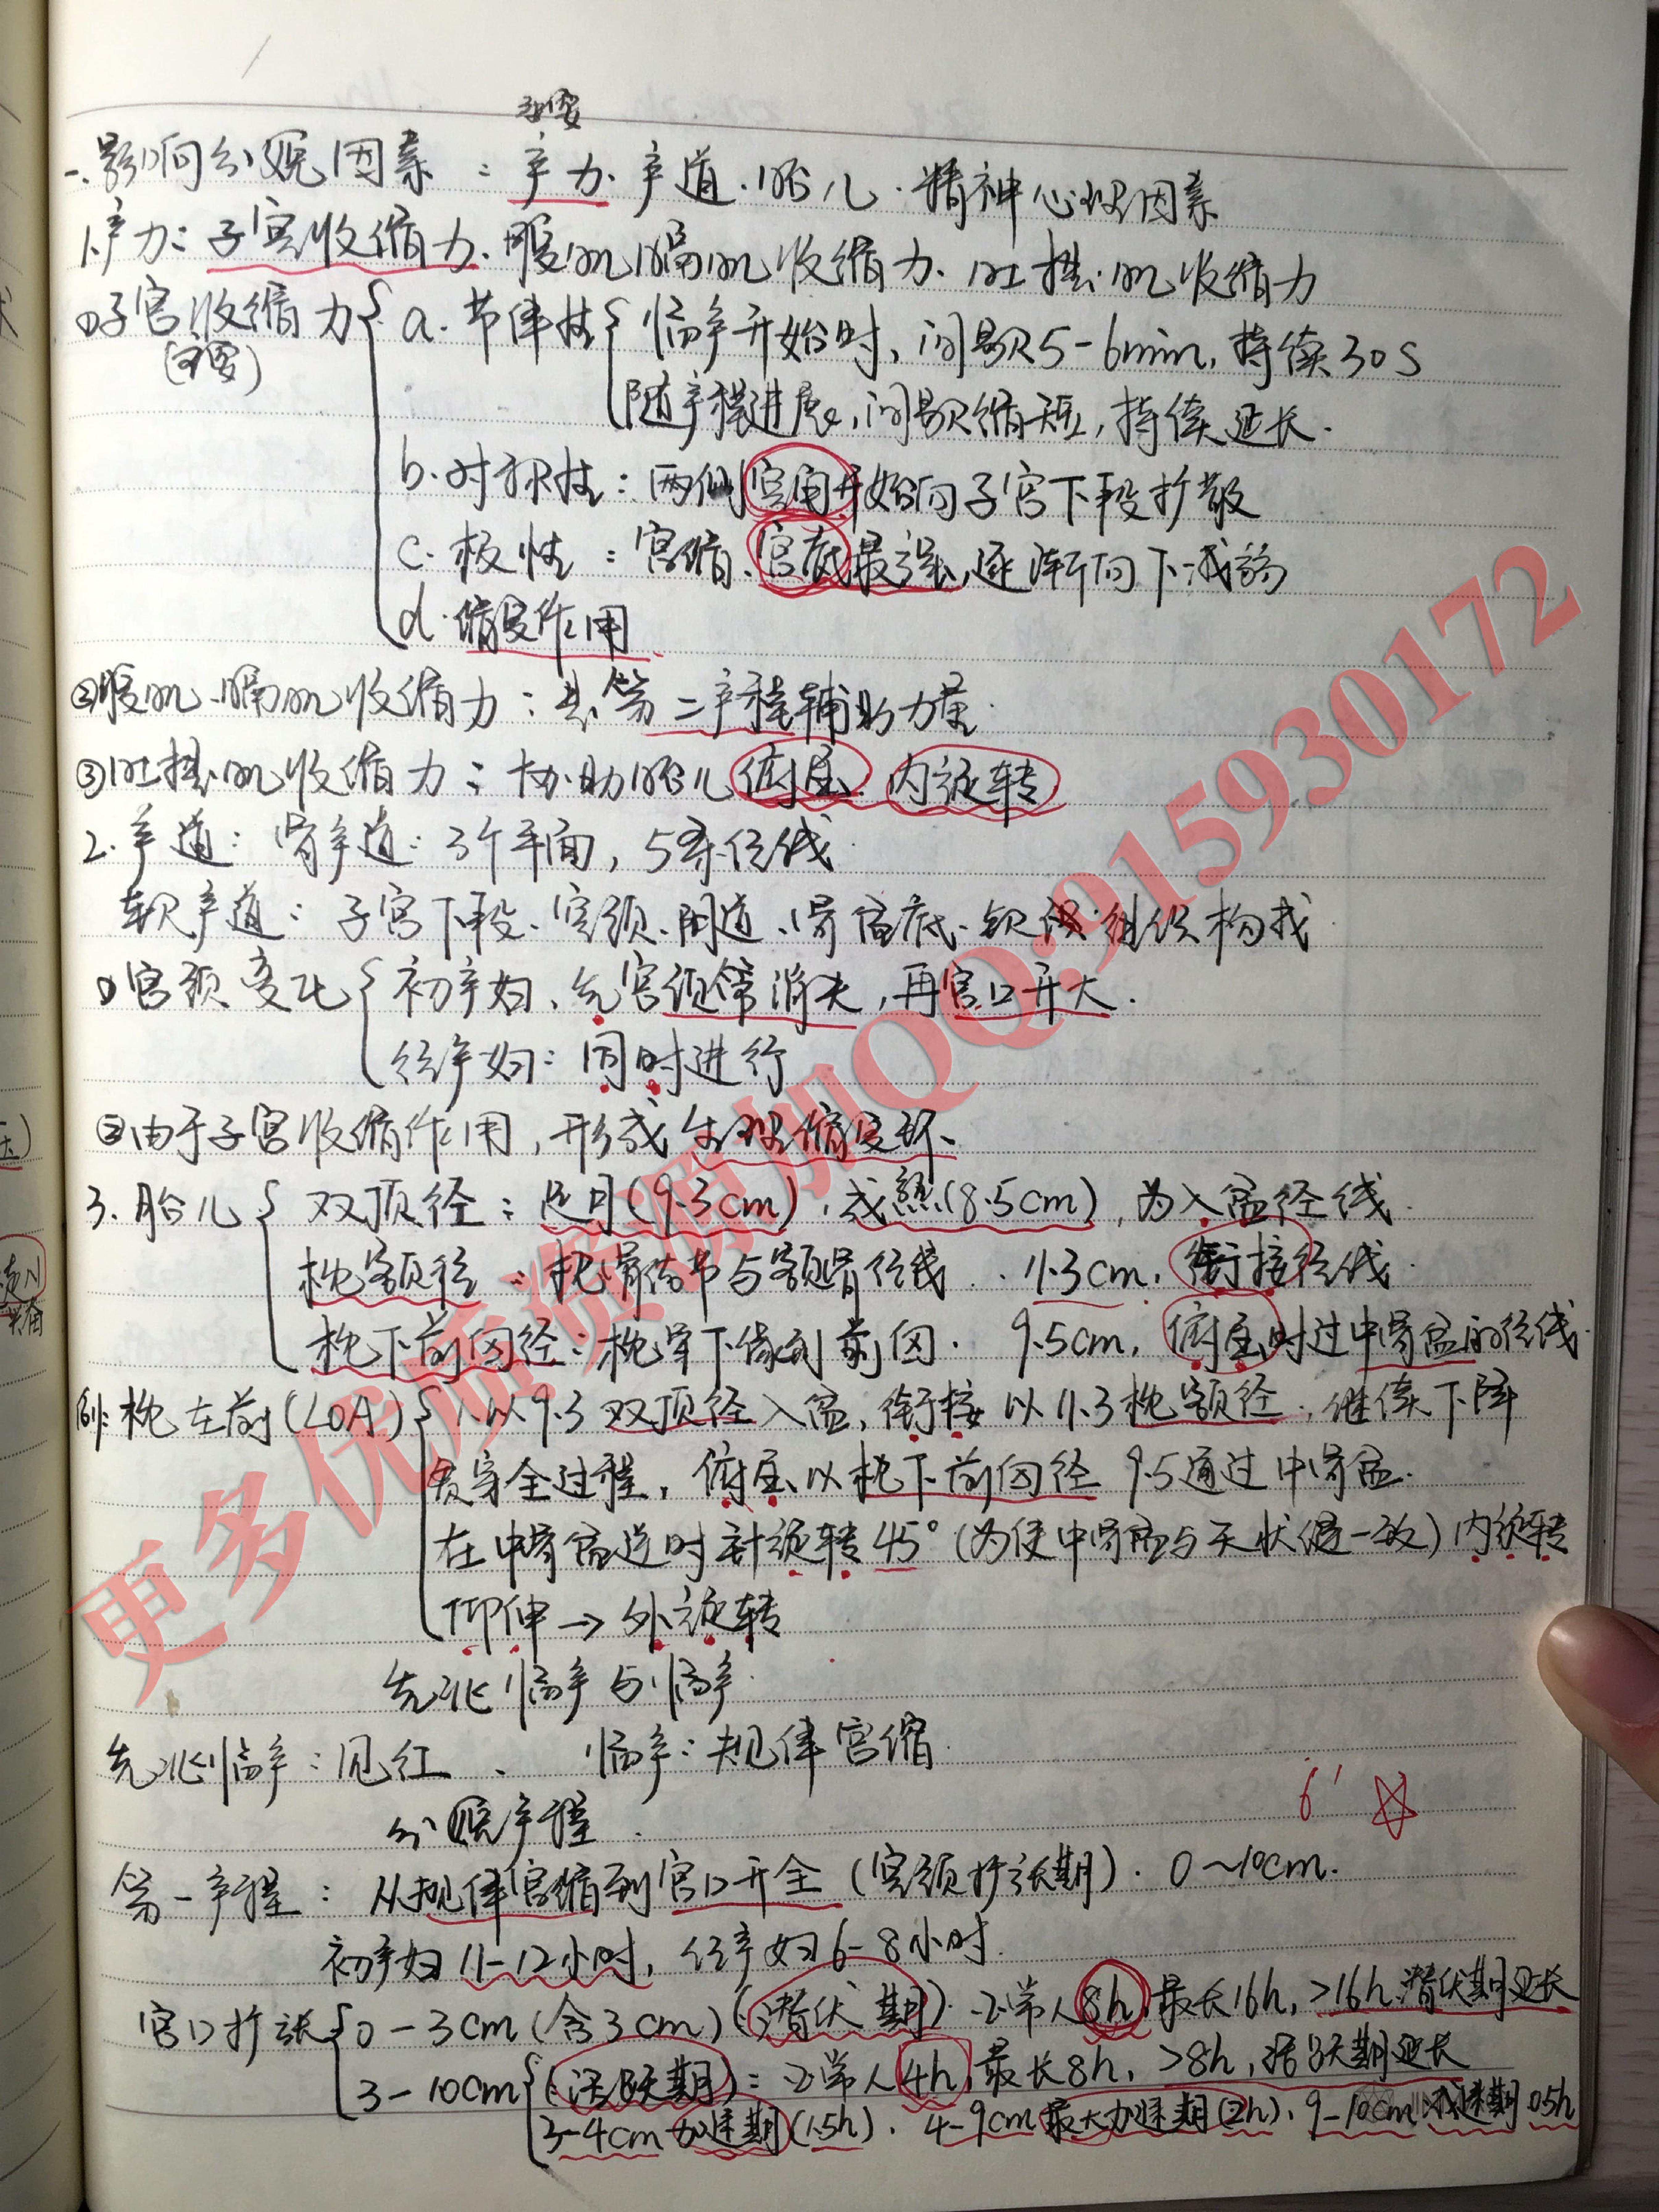 主要
一.影响分娩因素：产力.产道.胎儿.精神心理因素
1.产力：子宫收缩力.腹肌膈肌收缩力.肛提肌收缩力
①子宫收缩力 a.节律性 临产开始时，间歇5-6min，持续30s
(主要)
随产程进展，间歇缩短，持续延长.
b.对称性：两侧宫角开始向子宫下段扩散
c.极性：宫缩、宫底最强，逐渐向下减弱
d.缩复作用
②腹肌、膈肌收缩力：是第二产程辅助力量.
③肛提肌收缩力：协助胎儿俯屈 内旋转
2.产道：骨产道：3个平面，5条径线.
软产道：子宫下段、宫颈、阴道、骨盆底、软组织构成
①宫颈变化 初产妇、先宫颈管消失，再宫口开大.
经产妇：同时进行
②由于子宫收缩作用，形成生理缩复环、
3.胎儿 双顶径：足月(9.3cm)，成熟(8.5cm)，为入盆径线.
枕额径：枕骨结节与额骨径线.. 11.3cm，衔接径线.
枕下前囟径：枕骨下缘到前囟. 9.5cm，俯屈时过中骨盆的径线.
例：枕左前(LOA) 以9.3双顶径入盆，衔接以11.3枕额径，继续下降
贯穿全过程，俯屈、以枕下前囟径 9.5通过中骨盆.
在中骨盆逆时针旋转45°(为使中骨盆与矢状缝一致)内旋转
仰伸→外旋转
先兆临产与临产.
先兆临产：见红、 临产：规律宫缩.
分娩产程.
6' ☆
第一产程：从规律宫缩到宫口开全(宫颈扩张期).0~10cm.
初产妇11-12小时，经产妇6-8小时.
宫口扩张 0-3cm(含3cm)(潜伏期).正常人8h，最长16h，>16h潜伏期延长
3-10cm (活跃期)：正常人4h，最长8h，>8h，活跃期延长
3-4cm加速期(1.5h)、4-9cm最大加速期(2h)、9-10cm减速期0.5h
更多优质资源加QQ:915930172